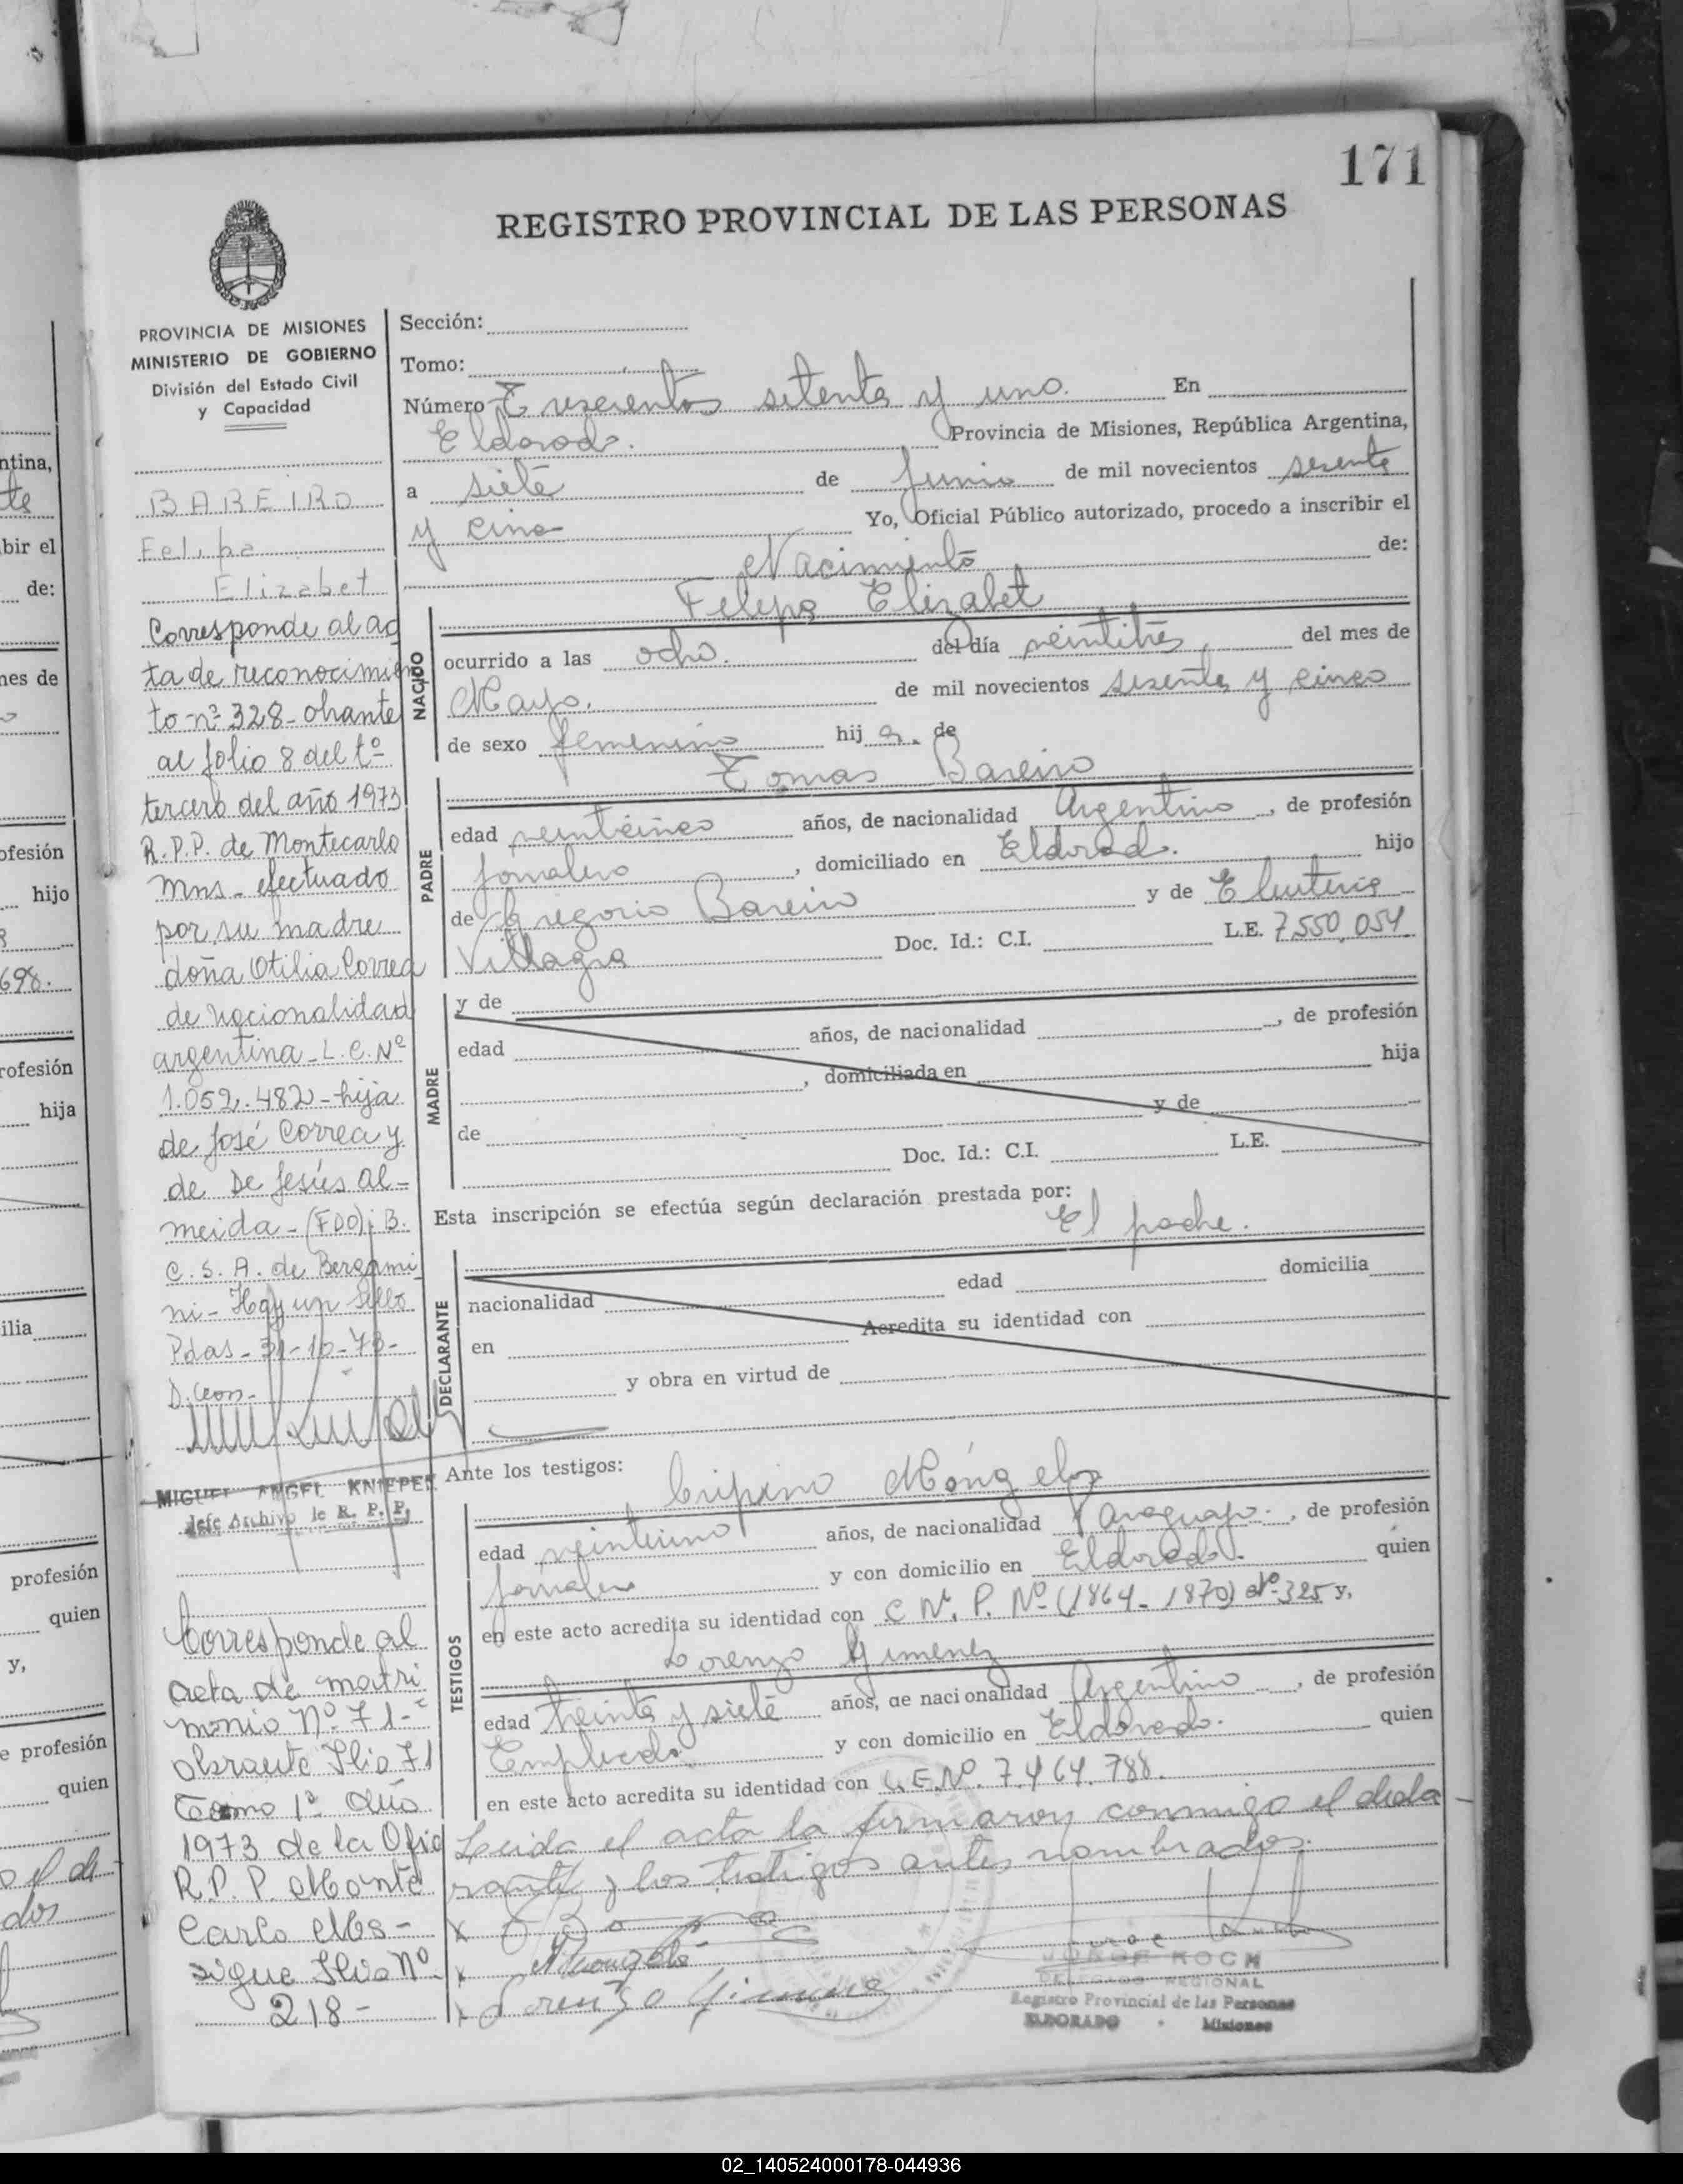 171
REGISTRO PROVINCIAL DE LAS PERSONAS
PROVINCIA DE MISIONES
MINISTERIO DE GOBIERNO
División del Estado Civil
y Capacidad
BAREIRO
Felipa
Elizabet
Corresponde al ac
ta de reconocimien
to nº 328 - obrante
al folio 8 del tº
tercero del año 1973
R.P.P. de Montecarlo
Mns - efectuado
por su madre
doña Otilia Correa
de nacionalidad
argentina - L.C. Nº
1.052.482 - hija
de José Correa y
de De Jesús Al-
meida - (FDO): B.
C. S. A. de Bergami
ni - Hay un sello
Pdas - 31-10-73-
MIGUEL ANGEL KNIEPER
Jefe Archivo de R. P. P.
Corresponde al
acta de matri
monio Nº 71-
obrante Flio 71
Tomo 1º Año
1973 de la Ofic
R.P.P. Monte
Carlo Mns-
sigue Flio Nº
218-
Sección:
Tomo:
Número Trescientos setenta y uno. En
Eldorado. Provincia de Misiones, República Argentina,
a siete de Junio de mil novecientos sesenta
y cinco Yo, Oficial Público autorizado, procedo a inscribir el
Nacimiento de:
Felipa Elizabet
NACIDO
ocurrido a las ocho. del día veintitrés del mes de
Mayo. de mil novecientos sesenta y cinco
de sexo femenino hij a. de
Tomas Bareiro
PADRE
edad veinticinco años, de nacionalidad Argentino, de profesión
Jornalero, domiciliado en Eldorado. hijo
de Gregorio Bareiro y de Eleuteria
Villagra Doc. Id.: C.I. L.E. 7.550.054
MADRE
y de
edad años, de nacionalidad , de profesión
, domiciliada en hija
de y de
Doc. Id.: C.I. L.E.
Esta inscripción se efectúa según declaración prestada por:
El padre.
DECLARANTE
edad domicilia
nacionalidad
en Acredita su identidad con
y obra en virtud de
Ante los testigos:
Cripino Móngelos
TESTIGOS
edad veintiuno años, de nacionalidad Paraguayo. , de profesión
Jornalero y con domicilio en Eldorado. quien
en este acto acredita su identidad con C.N.P. Nº (1864-1870) Nº 325 y,
Lorenzo Gimenez
edad treinta y siete años, de nacionalidad Argentino , de profesión
Empleado. y con domicilio en Eldorado. quien
en este acto acredita su identidad con L.E.Nº. 7.464.788.
Leida el acta la firmaron conmigo el decla
rante y los testigos antes nombrados.
Lorenzo Gimenez
JORGE KOCH
DELEGADO REGIONAL
Registro Provincial de las Personas
ELDORADO - Misiones
ntina,
te
bir el
de:
nes de
ofesión
hijo
698.
rofesión
hija
ilia
profesión
quien
y,
e profesión
quien
dos
02_140524000178-044936